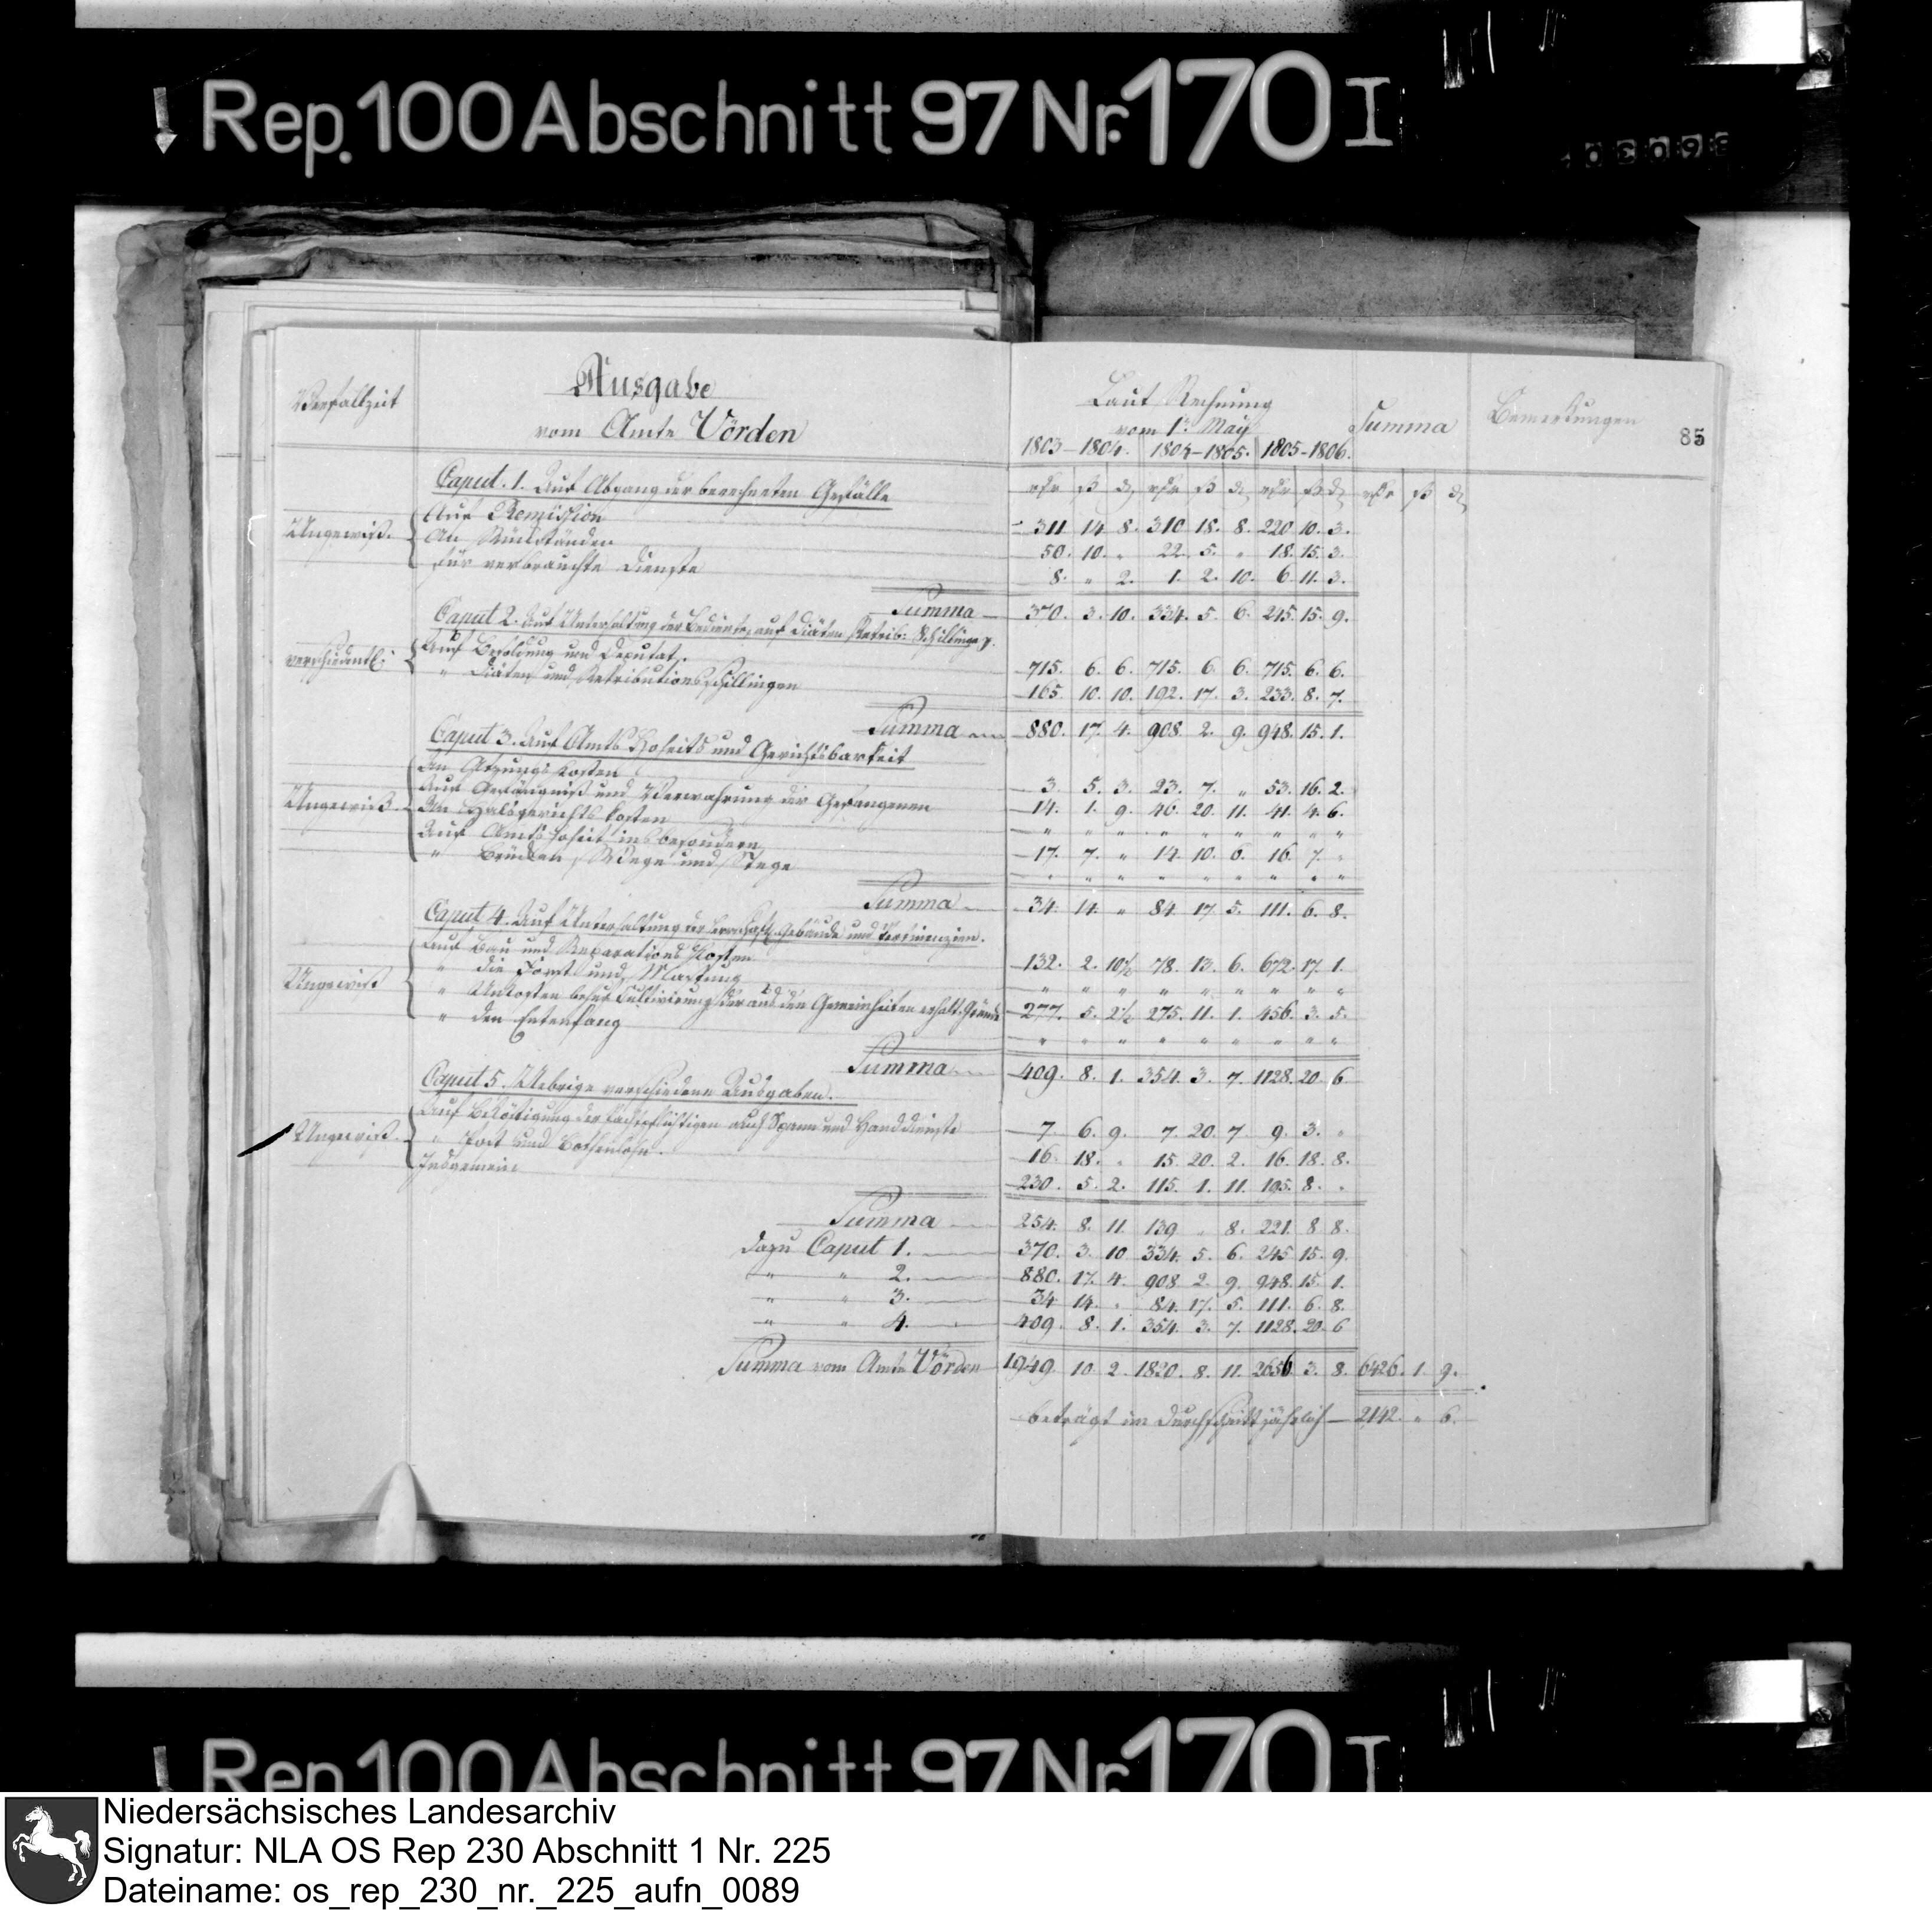 Rep. 100 Abschnitt 97 Nr. 170 I
Verfallzeit
Ausgabe
vom Amte Vörden
Laut Rechnung
vom 1t. May
1803-1804. 1804-1805. 1805-1806.
Summa
Bemerkungen
85
Caput. 1. Auf Abgang der berechneten Gefälle
Ungewiß.
Auf Remission 311 14 8. 310 18. 8. 220 10. 3.
An Rückständen 50. 10. " 22. 5. " 18. 15. 3.
für verbrauchte Dienste 8. " 2. 1. 2. 10. 6. 11. 3.
Summa 370. 3. 10. 334. 5. 6. 245. 15. 9.
Caput 2. Auf Unterhaltung der Bediente, auf Diäten, Retrib: Schillinge p.
Auf Besoldung und Deputat. 715. 6. 6. 715. 6. 6. 715. 6. 6.
" Diäten und Retributionsschillingen 165. 10. 10. 192. 17. 3. 233. 8. 7.
Summa 880. 17. 4. 908. 2. 9. 948. 15. 1.
Caput 3. Auf Amts Hoheits und Gerichtsbarkeit
Ungewiß
An Atzungskosten 3. 5. 3. 23. 7. " 53. 16. 2.
Auf Gefängniß und Verwahrung der Gefangenen 14. 1. 9. 46. 20. 11. 41. 4. 6.
An Halsgerichts kosten " " " " " " " " "
Auf Amtshoheit insbesondere 17. 7. " 14. 10. 6. 16. 7. "
" Brücken, Wege und Stege " " " " " " " " "
Summa 34. 14. " 84. 17. 5. 111. 6. 8.
Caput 4. Auf Unterhaltung der herrschaftl. Gebäude und Pertinenzien.
Ungewiß
Auf Bau und Reparations Kosten 132. 2. 10½ 78. 13. 6. 672. 17. 1.
" die Forst und Mastung " " " " " " " " "
" Unkosten behuf Cultivirung der aus den Gemeinheiten erhalt. Gründe 277. 5. 2½ 275. 11. 1. 456. 3. 5.
" den Entenfang " " " " " " " " "
Summa 409. 8. 1. 354. 3. 7. 1128. 20. 6
Caput 5. Uebrige verschiedene Ausgaben.
Ungewiß.
Auf Beköstigung der Pachtpflichtigen auch Spann und Handdienste 7. 6. 9. 7. 20. 7 9. 3. "
" Post und Bothenlohn. 16. 18. " 15. 20. 2. 16. 18. 8.
Insgemein 230. 5. 2. 115. 1. 11. 195. 8. "
Summa 254. 8. 11. 139 " 8. 221. 8 8.
dazu Caput 1. 370. 3. 10 334. 5. 6. 245 15. 9.
" " 2. 880. 17. 4. 908 2. 9. 948. 15. 1.
" " 3. 34 14. " 84. 17. 5. 111. 6. 8.
" " 4. 409. 8. 1. 354. 3. 7. 1128. 20. 6
Summa vom Amte Vörden 1949. 10. 2. 1820. 8. 11. 2656 3. 8. 6426. 1. 9.
beträgt im Durchschnitt jährlich 2142. " 6.
Rep. 100 Abschnitt 97 Nr. 170 I
Niedersächsisches Landesarchiv
Signatur: NLA OS Rep 230 Abschnitt 1 Nr. 225
Dateiname: os_rep_230_nr._225_aufn_0089